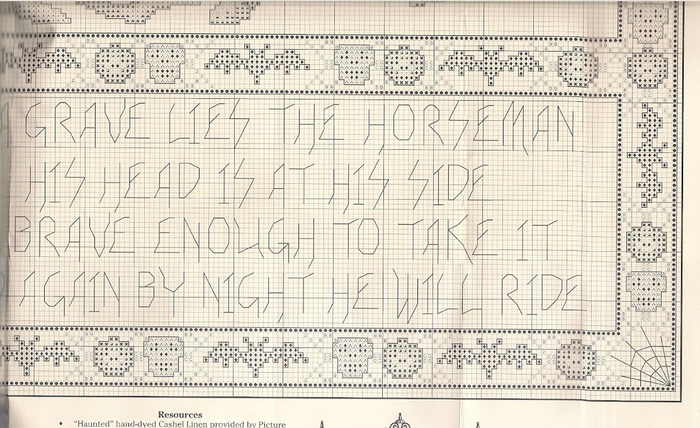 GRAVE LIES THE HORSEMAN
HIS HEAD IS AT HIS SIDE
BRAVE ENOUGH TO TAKE IT
AGAIN BY NIGHT HE WILL RIDE
Resources
• "Haunted" hand-dyed Cashel Linen provided by Picture